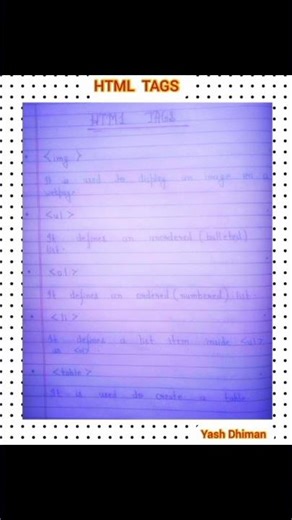 HTML TAGS
HTML TAGS
<img>
It is used to display an image on a
webpage
<ul>
It defines an unordered (bulleted)
list.
<ol>
It defines an ordered (numbered) list.
<li>
It defines a list item inside <ul>
<table>
It is used to create a table
Yash Dhiman